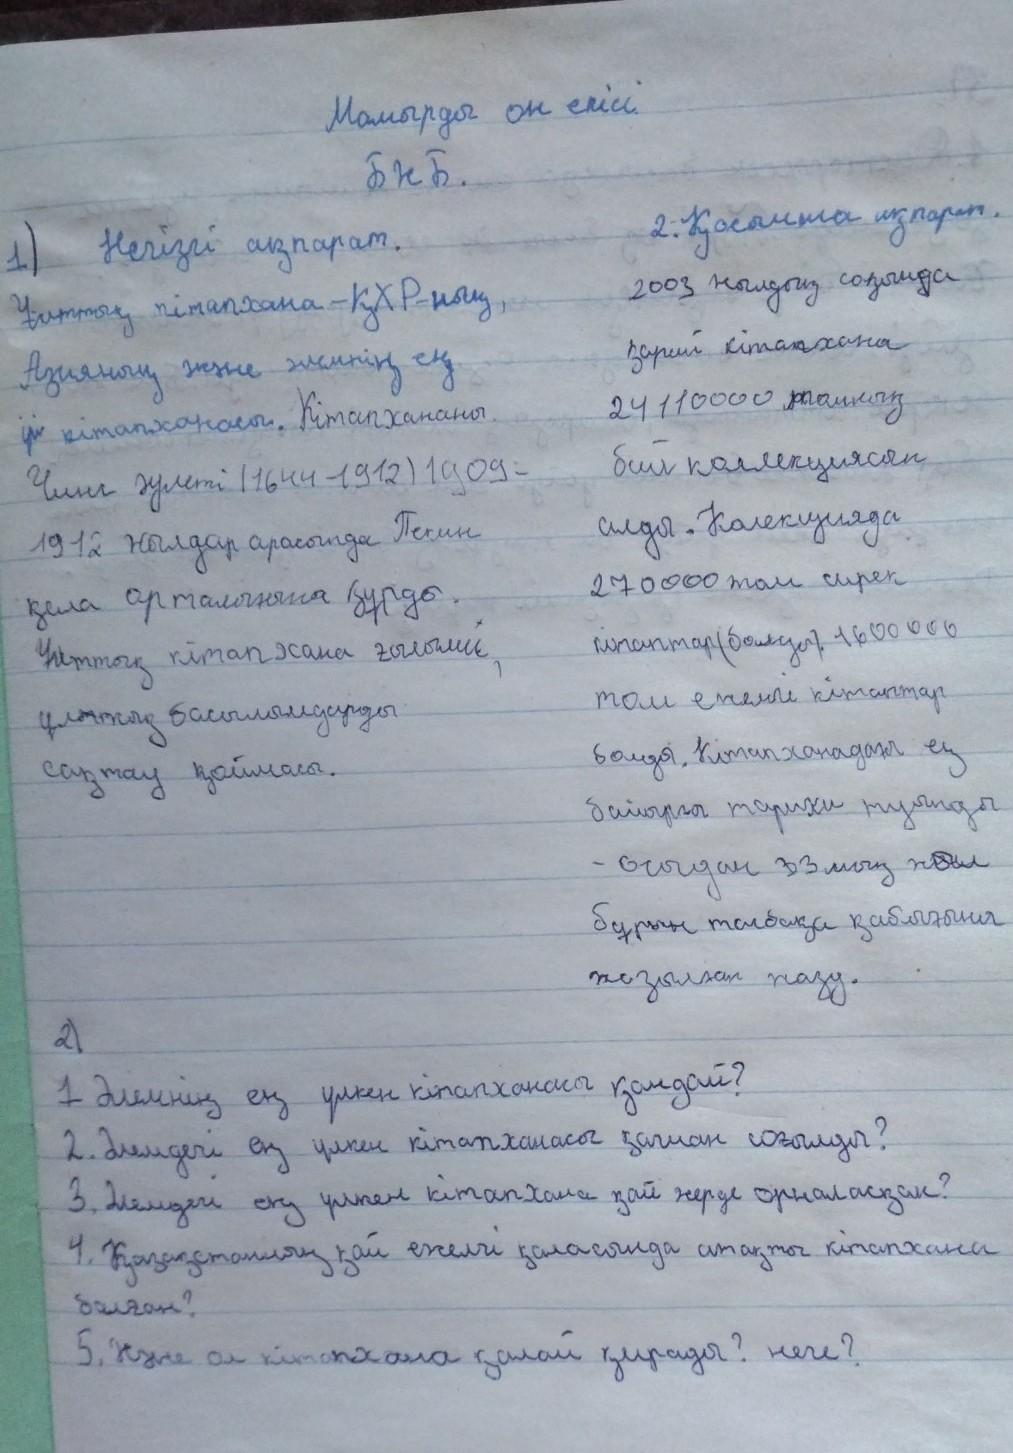 Мамырдың он екісі.
БЖБ.
1) Негізгі ақпарат.
Ұлттық кітапхана - ҚХР-ның,
Азияның және әлемнің ең
ірі кітапханасы. Кітапхананы
Чинг әулеті (1644-1912) 1909-
1912 жылдар арасында Пекин
қала орталығына құрды.
Ұлттық кітапхана ғылыми,
ұлттық басылымдарды
сақтау қоймасы.
2. Қосымша ақпарат.
2003 жылдың соңында
қарай кітапхана
24110000 томның
бай коллекциясын
алды. Колекцияда
270000 том сирек
кітаптар (болды). 1600000
том ежелгі кітаптар
болды. Кітапханадағы ең
байырғы тарихи туынды
- осыдан 33 мың жыл
бұрын тасбақа қабығына
жазылған жазу.
2)
1 Әлемнің ең үлкен кітапханасы қандай?
2. Әлемдегі ең үлкен кітапханасы қашан соғылды?
3. Әлемдегі ең үлкен кітапхана қай жерде орналасқан?
4. Қазақстанның қай ежелгі қаласында атақты кітапхана
болған?
5. Және ол кітапхана қалай қирады? неге?